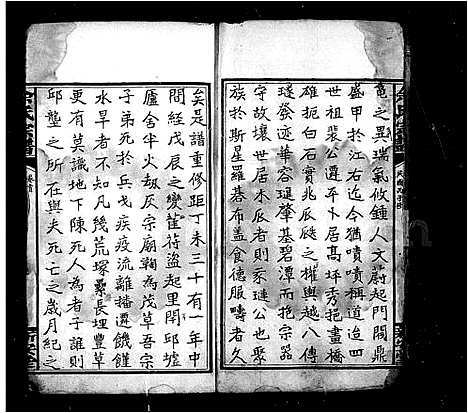 竟之異瑞氣攸鍾人文蔚起門閥鼎
盛甲於江右迄今猶嘖嘖稱道治四
世祖裴公始遷平卜居髙坪秀挹畫橋
雄扼白石實為瓜瓞之權輿越八傳
璲發迹華容璡肇基碧潭而抱宗器
守故壤世居木瓜者則家璉公也聚
族於斯星羅碁布蓋食德服疇者久
矣是譜重修距丁未三十有一年中
間經戊辰之變萑苻盜起里閈邱墟
廬舍半火劫灰宗廟鞠為茂草吾宗
子弟死於兵戈疾疫流離播遷饑饉
水旱者不知凡幾荒塚纍長埋豐草
更有莫識地下陳死人為者子誰則
邱壟之所在與夫死亡之歲月紀之
卷首